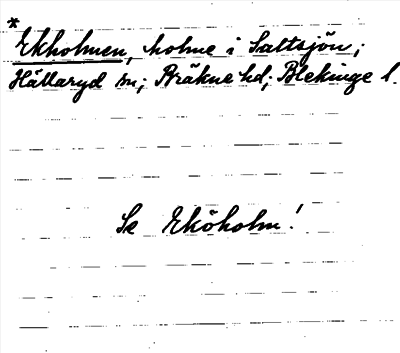 *
Ekholmen, holme i Saltsjön;
Hällaryd sn; Bräkne hd; Blekinge l.
Se Eköholm!